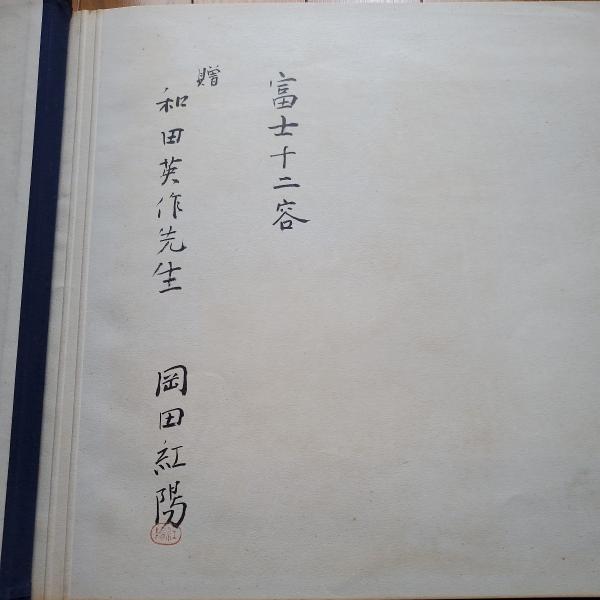 富士十二容
贈
和田英作先生
岡田紅陽